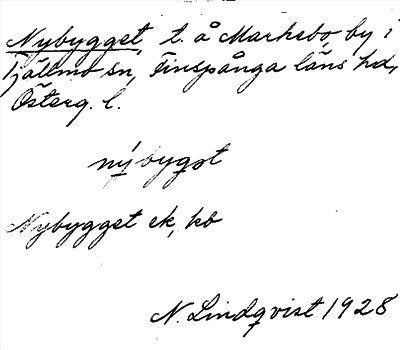 Nybygget, t. å Markebo, by i
Tjällmo sn, Finspånga läns hd,
Österg. l.
nýbygət
Nybygget ek, kb
N. Lindqvist 1928